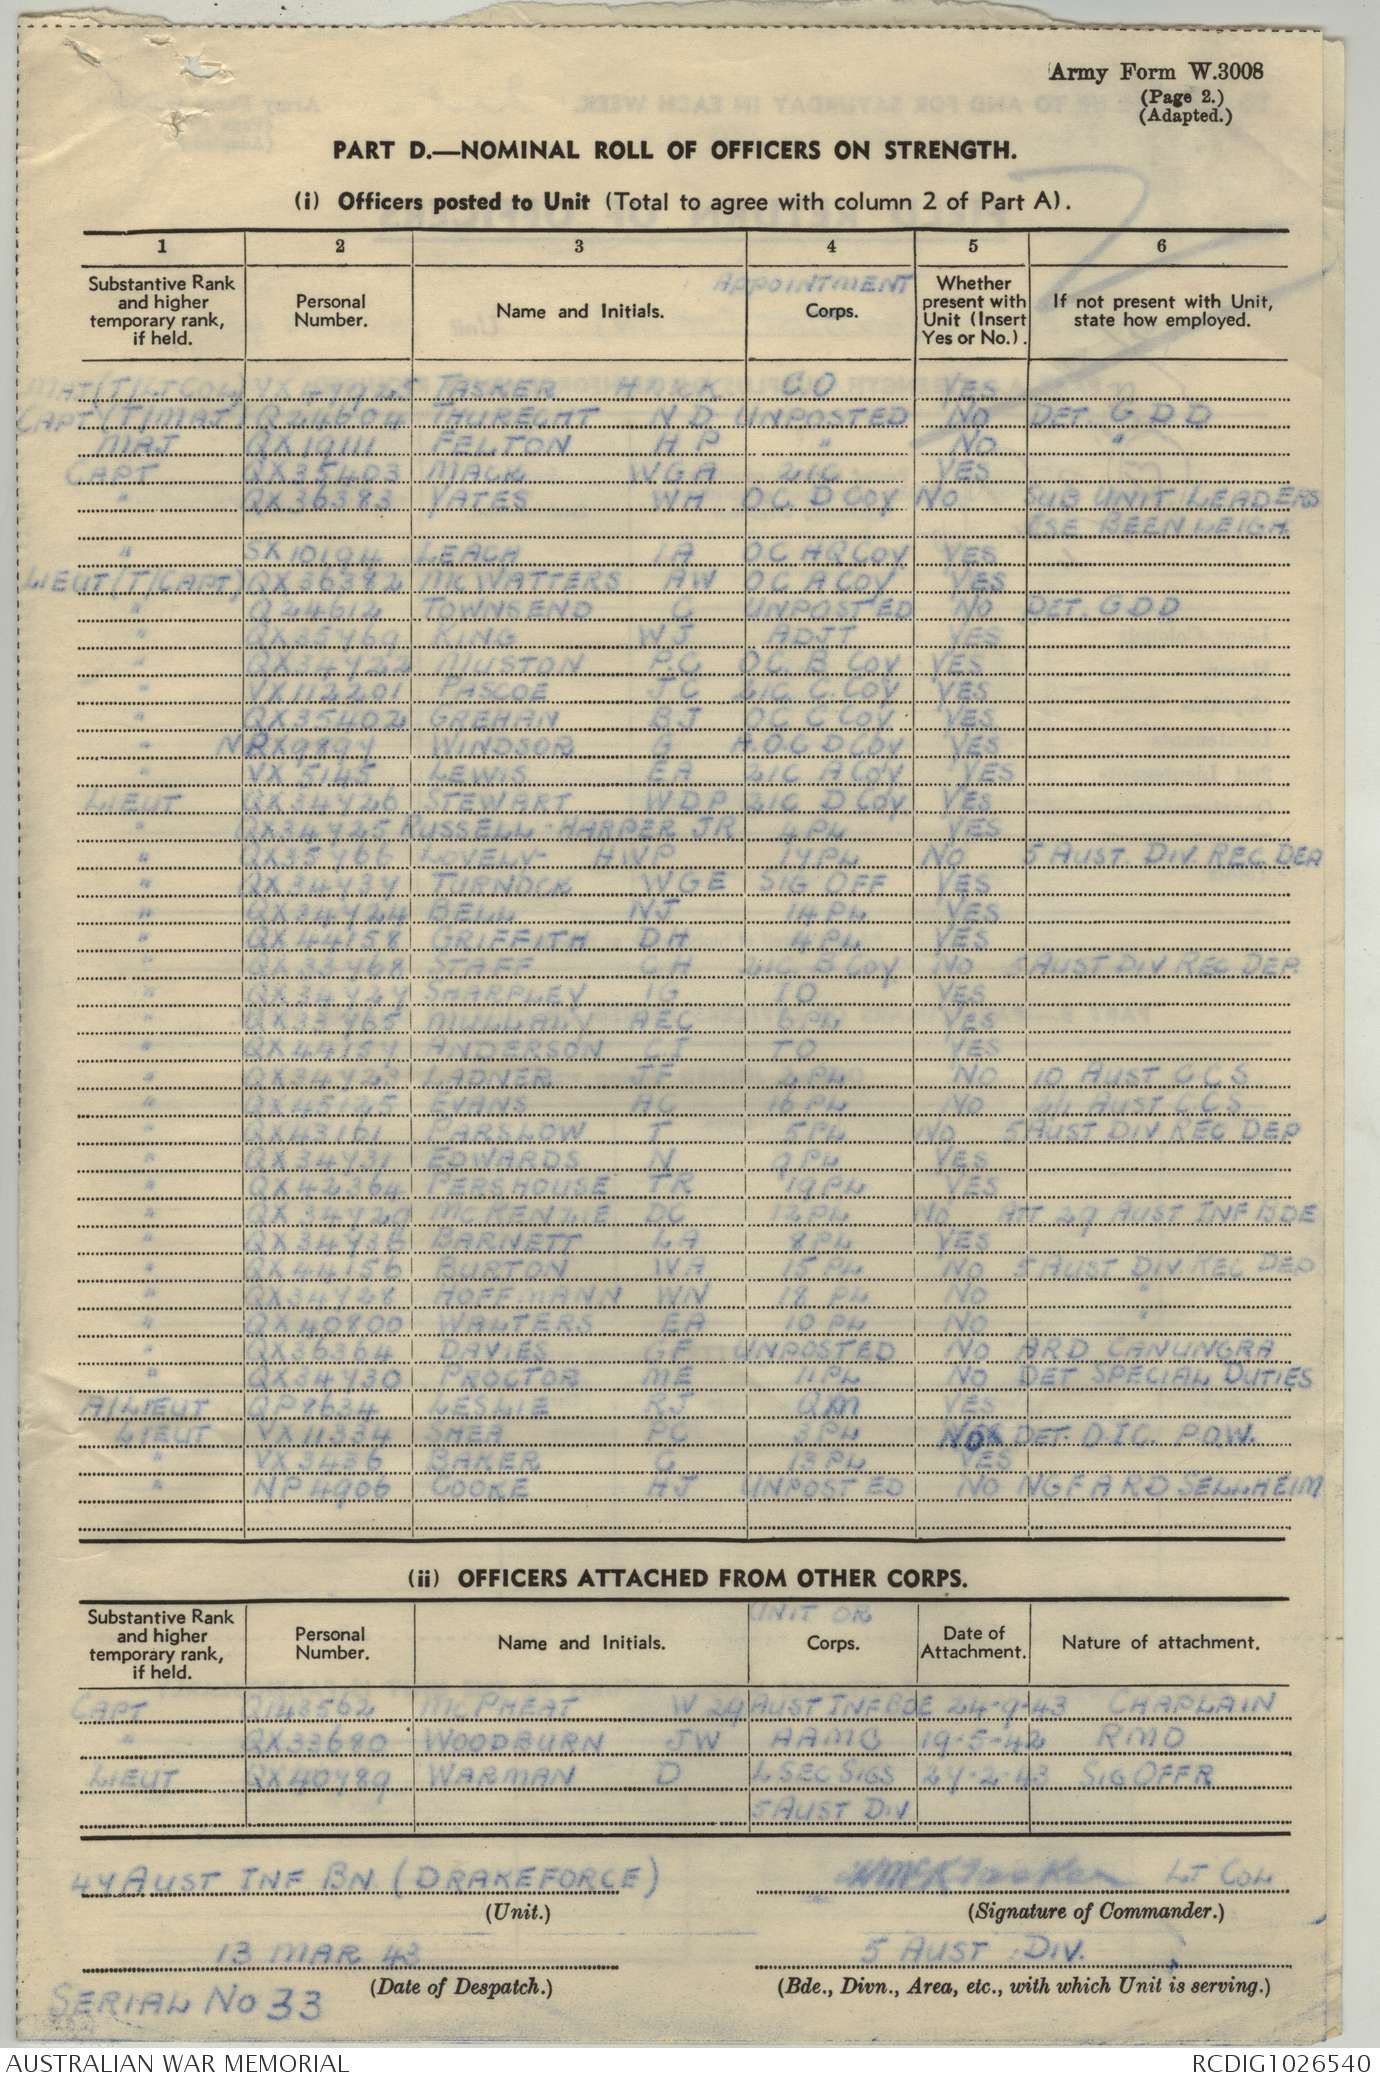 Army Form W.3008
(Page 2.)
(Adapted.)
PART D.—NOMINAL ROLL OF OFFICERS ON STRENGTH.
(i) Officers posted to Unit (Total to agree with column 2 of Part A).
1 2 3 4 5 6
Substantive Rank and higher temporary rank, if held. Personal Number. Name and Initials. APPOINTMENT Corps. Whether present with Unit (Insert Yes or No.). If not present with Unit, state how employed.
MAJ (T/LT COL) VX47925 TASKER H McK C.O YES
CAPT (T/MAJ) Q24604 THURECHT N D UNPOSTED NO DET. G D D
MAJ QX19111 FELTON H P " NO "
CAPT QX35403 MACK WGA 2IC YES
" QX36383 YATES WH O.C. D Coy NO SUB UNIT LEADERS
CSE BEENLEIGH
" SX10194 LEACH IA OC HQ Coy YES
LIEUT (T/CAPT) QX36382 McWATTERS AW OC A Coy YES
" Q24612 TOWNSEND C UNPOSTED NO DET. G D D
" QX35769 KING WJ ADJT YES
" QX34722 MUSTON P.C O.C. B Coy YES
" VX112201 PASCOE JC 2IC C Coy YES
" QX35402 GREHAN BJ OC C Coy YES
" NX9897 WINDSOR G A.O.C D Coy YES
" VX5145 LEWIS EA 2IC A Coy YES
LIEUT QX34726 STEWART WDP 2IC D Coy YES
" QX34725 RUSSELL-HARPER JR 4 PL YES
" QX35766 LOVELY HWP 17 PL NO 5 AUST. DIV. REC. DEP
" QX34737 TURNOCK WGE SIG OFF YES
" QX34724 BELL NJ 14 PL YES
" QX44158 GRIFFITH DH 4 PL YES
" QX33768 STAFF CH 2IC B Coy NO 5 AUST DIV REC DEP
" QX34727 SHARPLEY IG IO YES
" QX33765 MULLALY AEC 6 PL YES
" QX44157 ANDERSON CI TO YES
" QX34723 LADNER JF 2 PL NO 10 AUST C C S
" QX45125 EVANS AC 16 PL NO 2/1 AUST C.C.S
" QX43161 PARSLOW T 5 PL NO 5 AUST DIV REC DEP
" QX34731 EDWARDS N 9 PL YES
" QX42364 PERSHOUSE TR 19 PL YES
" QX34729 McKENZIE DC 12 PL NO ATT 29 AUST INF BDE
" QX34736 BARNETT LA 8 PL YES
" QX44156 BURTON WA 15 PL NO 5 AUST DIV REC DEP
" QX34728 HOFFMANN WN 18 PL NO "
" QX40800 WALTERS EA 10 PL NO "
" QX36364 DAVIES GF UNPOSTED NO ARD CANUNGRA
" QX34730 PROCTOR ME 11 PL NO DET SPECIAL DUTIES
A/LIEUT QP8634 LESLIE RJ QM YES
LIEUT VX11334 SHEA PC 3 PL NO DET. D.I.C. P.O.W.
" VX3436 BAKER C 13 PL YES
" NP4906 COOKE HJ UNPOSTED NO NGF ARD SELLHEIM
(ii) OFFICERS ATTACHED FROM OTHER CORPS.
Substantive Rank and higher temporary rank, if held. Personal Number. Name and Initials. UNIT OR Corps. Date of Attachment. Nature of attachment.
CAPT Q143562 McPHEAT W 29 AUST INF BDE 24-9-43 CHAPLAIN
" QX33680 WOODBURN JW AAMC 19-5-42 RMO
LIEUT QX40789 WARMAN D L SEC SIGS 27-2-43 SIG OFFR
5 AUST DIV
47 AUST INF BN (DRAKEFORCE) LT COL
(Unit.) (Signature of Commander.)
13 MAR 43 5 AUST DIV.
(Date of Despatch.) (Bde., Divn., Area, etc., with which Unit is serving.)
SERIAL No 33
AUSTRALIAN WAR MEMORIAL RCDIG1026540